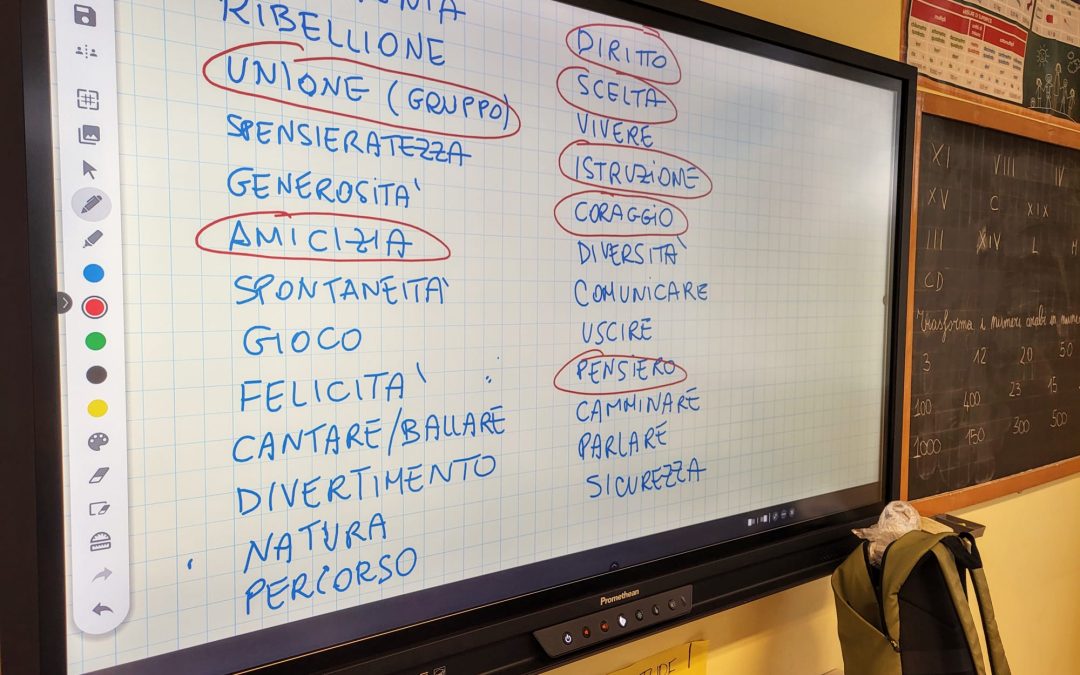 RIBELLIONE
UNIONE (GRUPPO)
SPENSIERATEZZA
GENEROSITA'
AMICIZIA
SPONTANEITA'
GIOCO
FELICITA'
CANTARE/BALLARE
DIVERTIMENTO
NATURA
PERCORSO
DIRITTO
SCELTA
VIVERE
ISTRUZIONE
CORAGGIO
DIVERSITA'
COMUNICARE
USCIRE
PENSIERO
CAMMINARE
PARLARE
SICUREZZA
Promethean
XI VIII IV
XV C XIX
III XIV L
CD
Trasforma i numeri arabi in
3 12 20 50
100 400 23 15
1000 150 300 500